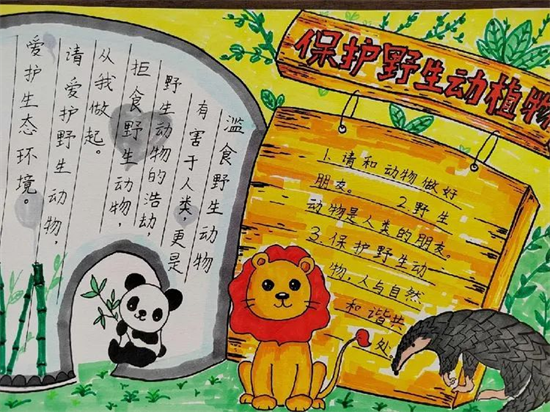 保护野生动植物
滥食野生动物
有害于人类,更是
野生动物的浩劫,
拒食野生动物,
从我做起。
请爱护野生动物,
爱护生态环境。
1.请和动物做好
朋友。 2.野生
动物是人类的朋友。
3.保护野生动
物,人与自然
和谐共
处